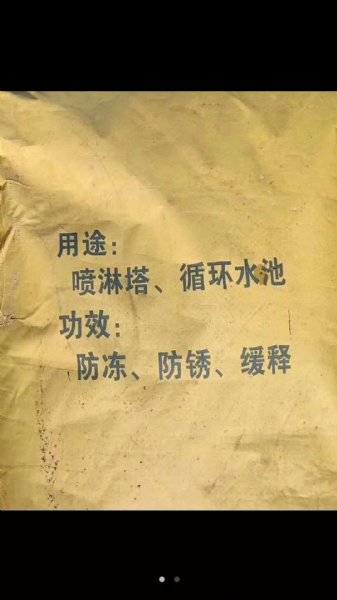 用途:
喷淋塔、循环水池
功效:
防冻、防锈、缓释